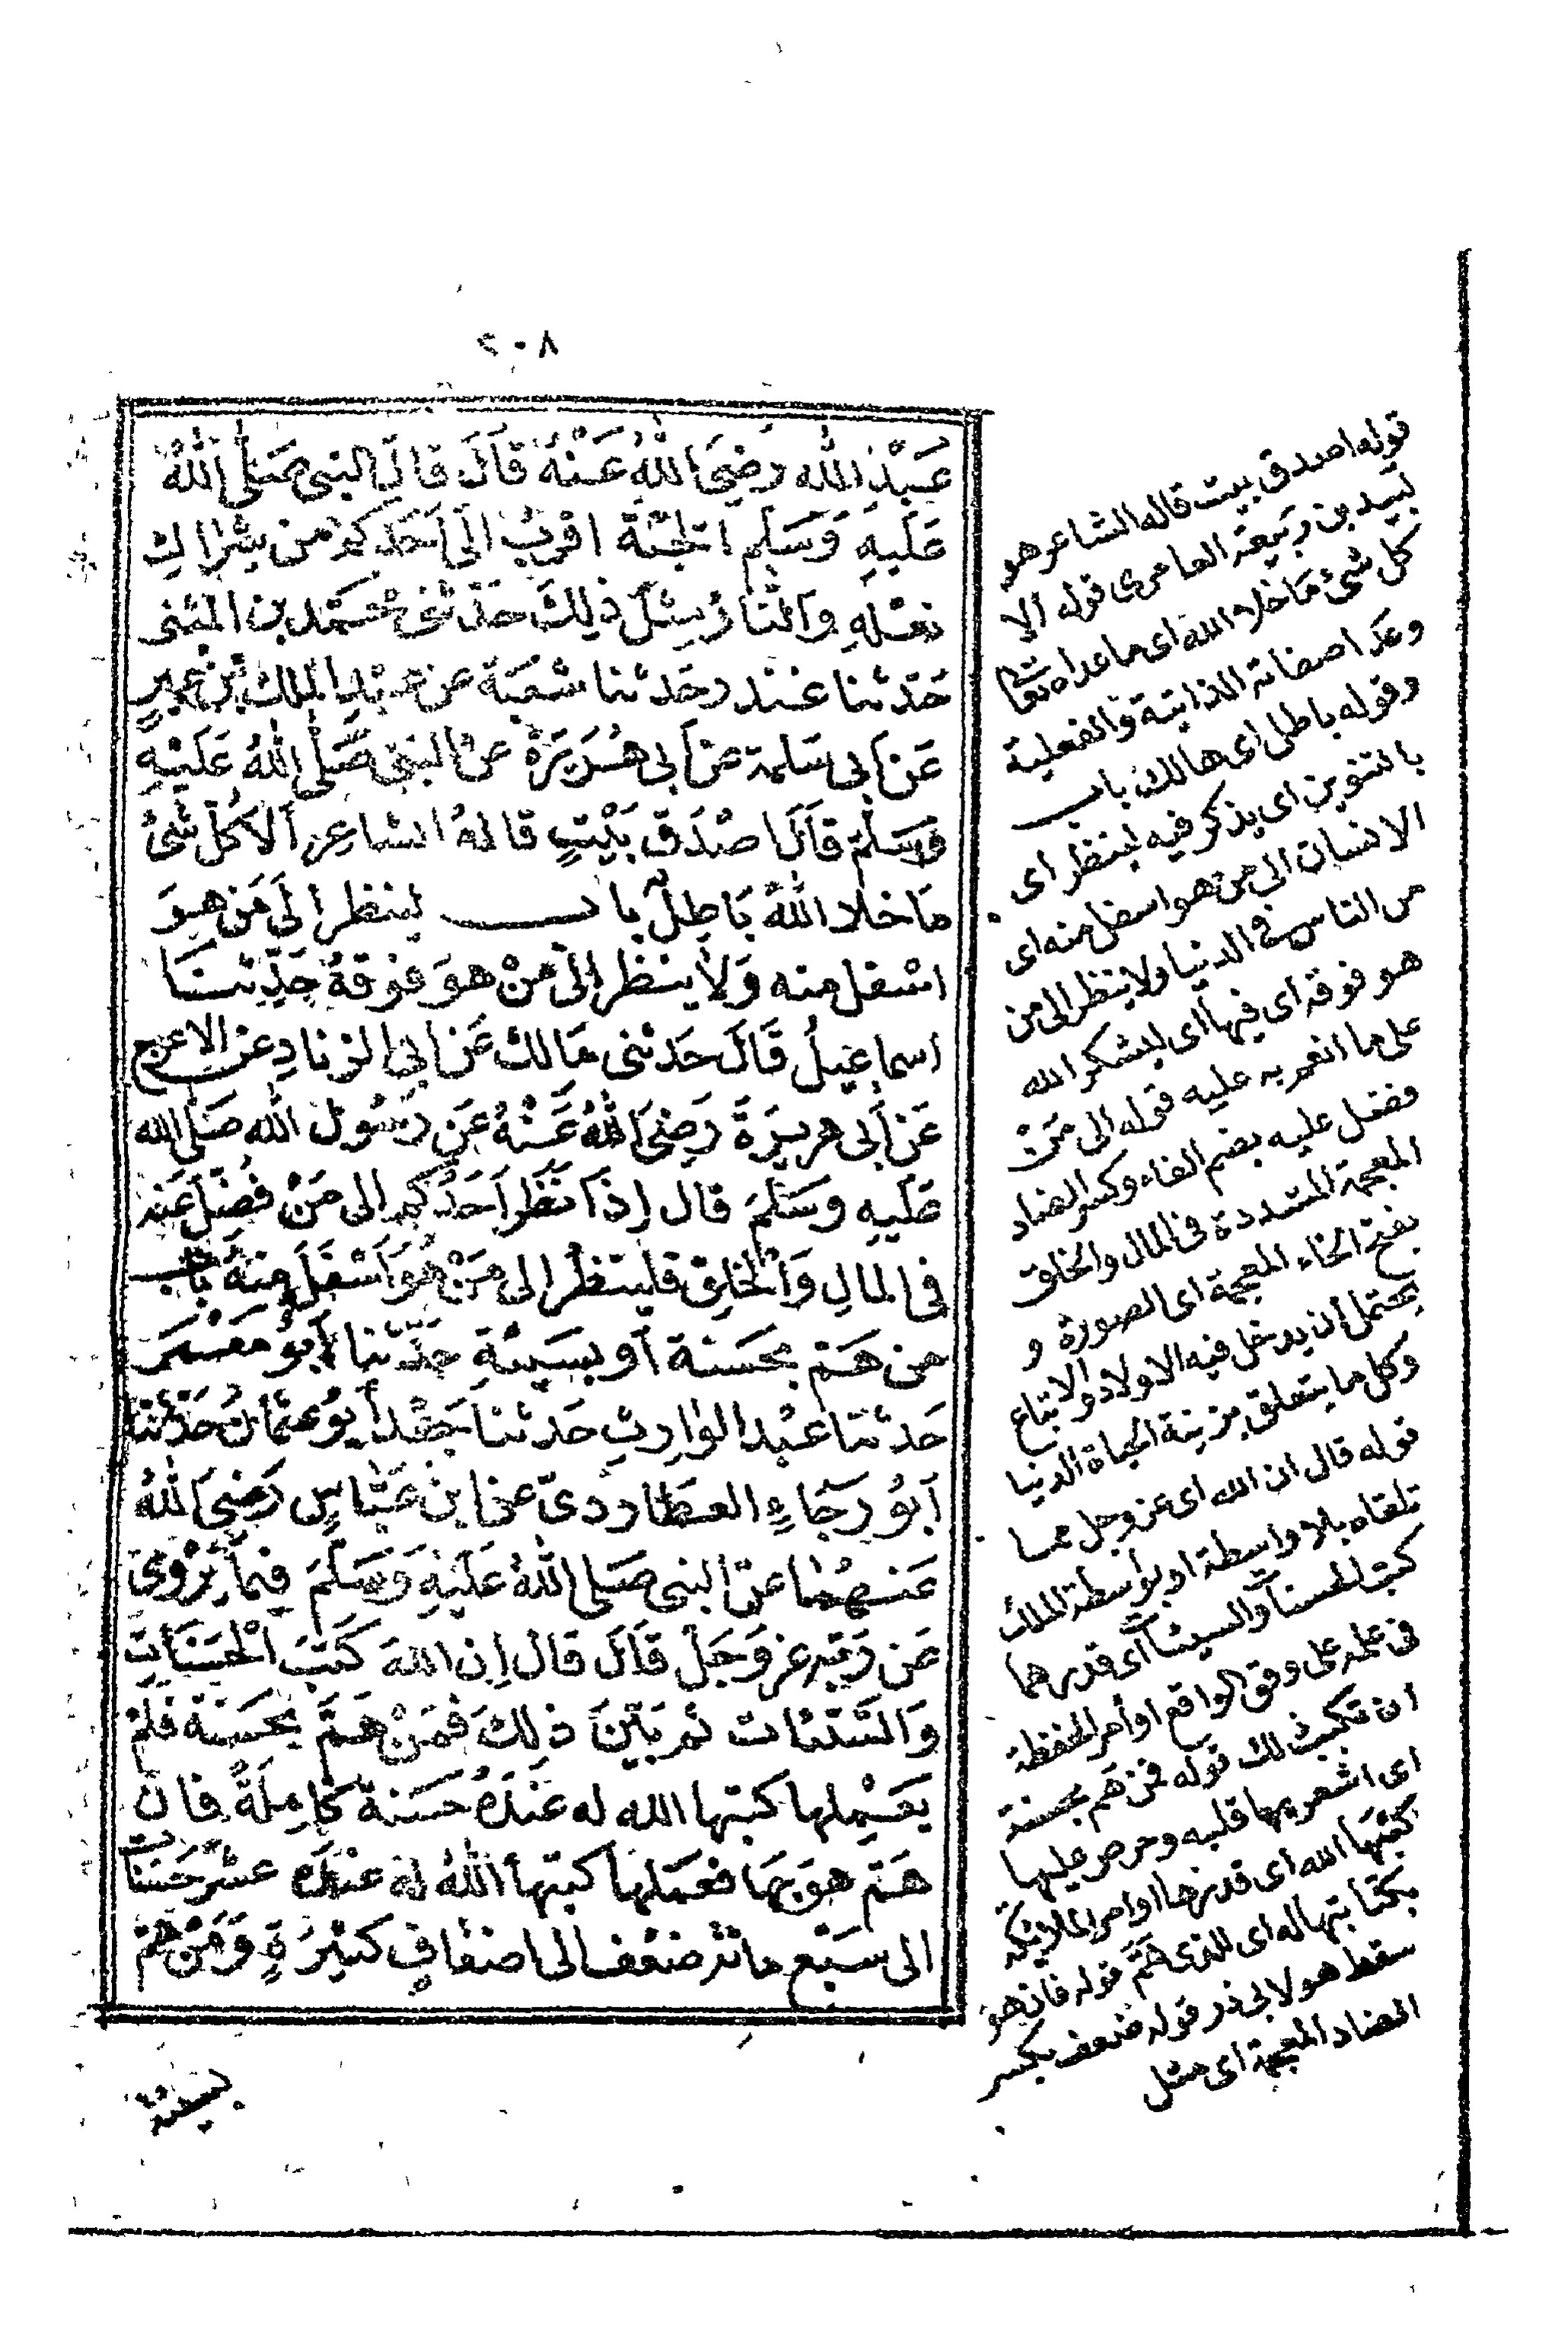 ٢٠٨
عَبْدِ الله رَضِيَ اللهُ عَنْهُ قَالَ قَالَ النبى صَلَّى اللهُ
عَلَيهِ وَسَلَّم اَلْجَنَّةُ اقْرَبُ الَى اَحَدِكُمْ من شِرَاكِ
نعْلِهِ وَالنَّارُ مِثْلُ ذٰلِكَ حَدَّثنى مُحَمَّد بن المثنى
حَدّثنا غندر حَدثنا شعْبَة عن عبْدِ الملك بْنِ عميرٍ
عَنْ اَبى سَلمة عن اَبى هُرَيرَةَ عن النبىِّ صَلَّى اللهُ عَلَيْهِ
وَسَلَّمَ قَالَ اَصْدَق بَيْتٍ قالهُ الشاعِر اَلَا كُلّ شَئْ
مَا خلا اللهَ بَاطِلٌ باب لينظر الَى مَن هوَ
اسْفل منه وَلَا ينظر الىَ مَنْ هوَ فوْقهُ حَدّثنَا
اسماعيلُ قَالَ حَدّثنى مَالك عَن اَبِى الزنادِ عن الاعرج
عَنْ اَبى هريرَةَ رَضِىَ اللهُ عَنْهُ عَن رَسُول الله صَلى الله
عَلَيهِ وَسَلَّمَ قال اِذَا نَظَر اَحَدُكم الى مَنْ فُضّلَ عَلَيْهِ
فى المالِ وَالْخلقِ فلينظُر الى مَنْ هُوَ اَسْفَل مِنهُ بَاب
من هَمّ بحَسَنة اَو بسَيئةٍ حَدّثنا اَبُو مَعْمَر
حَدثنا عبْد الوارِثِ حَدثنا جَعْد اَبوُ عثمانَ حَدَّثنَا
اَبُو رَجَاءٍ العطَارِدىّ عن ابن عَبّاسٍ رَضِىَ اللهُ
عَنهُمَا عن النبى صَلى اللهُ عَلَيْهِ وَسَلَّمَ فِيمَا يَرْوِى
عَن رَبّهِ عز وَجَلّ قَالَ قال اِن اللهَ كَتَبَ الْحَسَنَاتِ
وَالسَّيّئات ثم بَيّنَ ذٰلِكَ فَمَنْ هَمَّ بحَسَنَة فلمْ
يَعْمِلها كتبها الله له عندَهُ حَسَنة كامِلَةً فان
هَمّ هوَ بِهَا فعَمَلها كتبها اللهُ لهُ عندَهُ عشر حَسَنات
الى سَبْعِ مائة ضعْف الى اضعَافٍ كَثيرَةٍ وَمَنْ هَمّ
بسيئة
قوله اصدق بيت قاله الشاعر هو
لبيد بن ربيعة العامرى قوله الا
كل شئ ما خلا الله اى ما عداه تعالى
وعدا صفاته الذاتية والفعلية
وقوله باطل اى هالك باب
بالتنوين اى يذكر فيه لينظر اى
الانسان الى من هو اسفل منه اى
من الناس فى الدنيا ولا ينظر الى من
هو فوقه اى فيها اى ليشكر الله
على ما انعم به عليه قوله الى مَنْ
فضل عليه بضم الفاء وكسر الضاد
المعجمة المشددة فى المال والخلق
بفتح الخاء المعجمة اى الصورة و
يحتمل ان يدخل فيه الاولاد والاتباع
وكل ما يتعلق بزينة الحياة الدنيا
قوله قال ان الله اى عز وجل مما
تلقاه بلا واسطة او بواسطة الملك
كتب الحسنات والسيئات اى قدرهما
فى علمه على وفق الواقع او أمر الحفظة
ان تكتب ذلك قوله فمن هم بحسنة
اى اشعر بها قلبه وحرص عليها
كتبها الله اى قدرها او امر الملائكة
بكتابتها له اى للذى هَمّ قوله فان هو
سقط هو لابى ذر قوله ضعف بكسر
الضاد المعجمة اى مثل